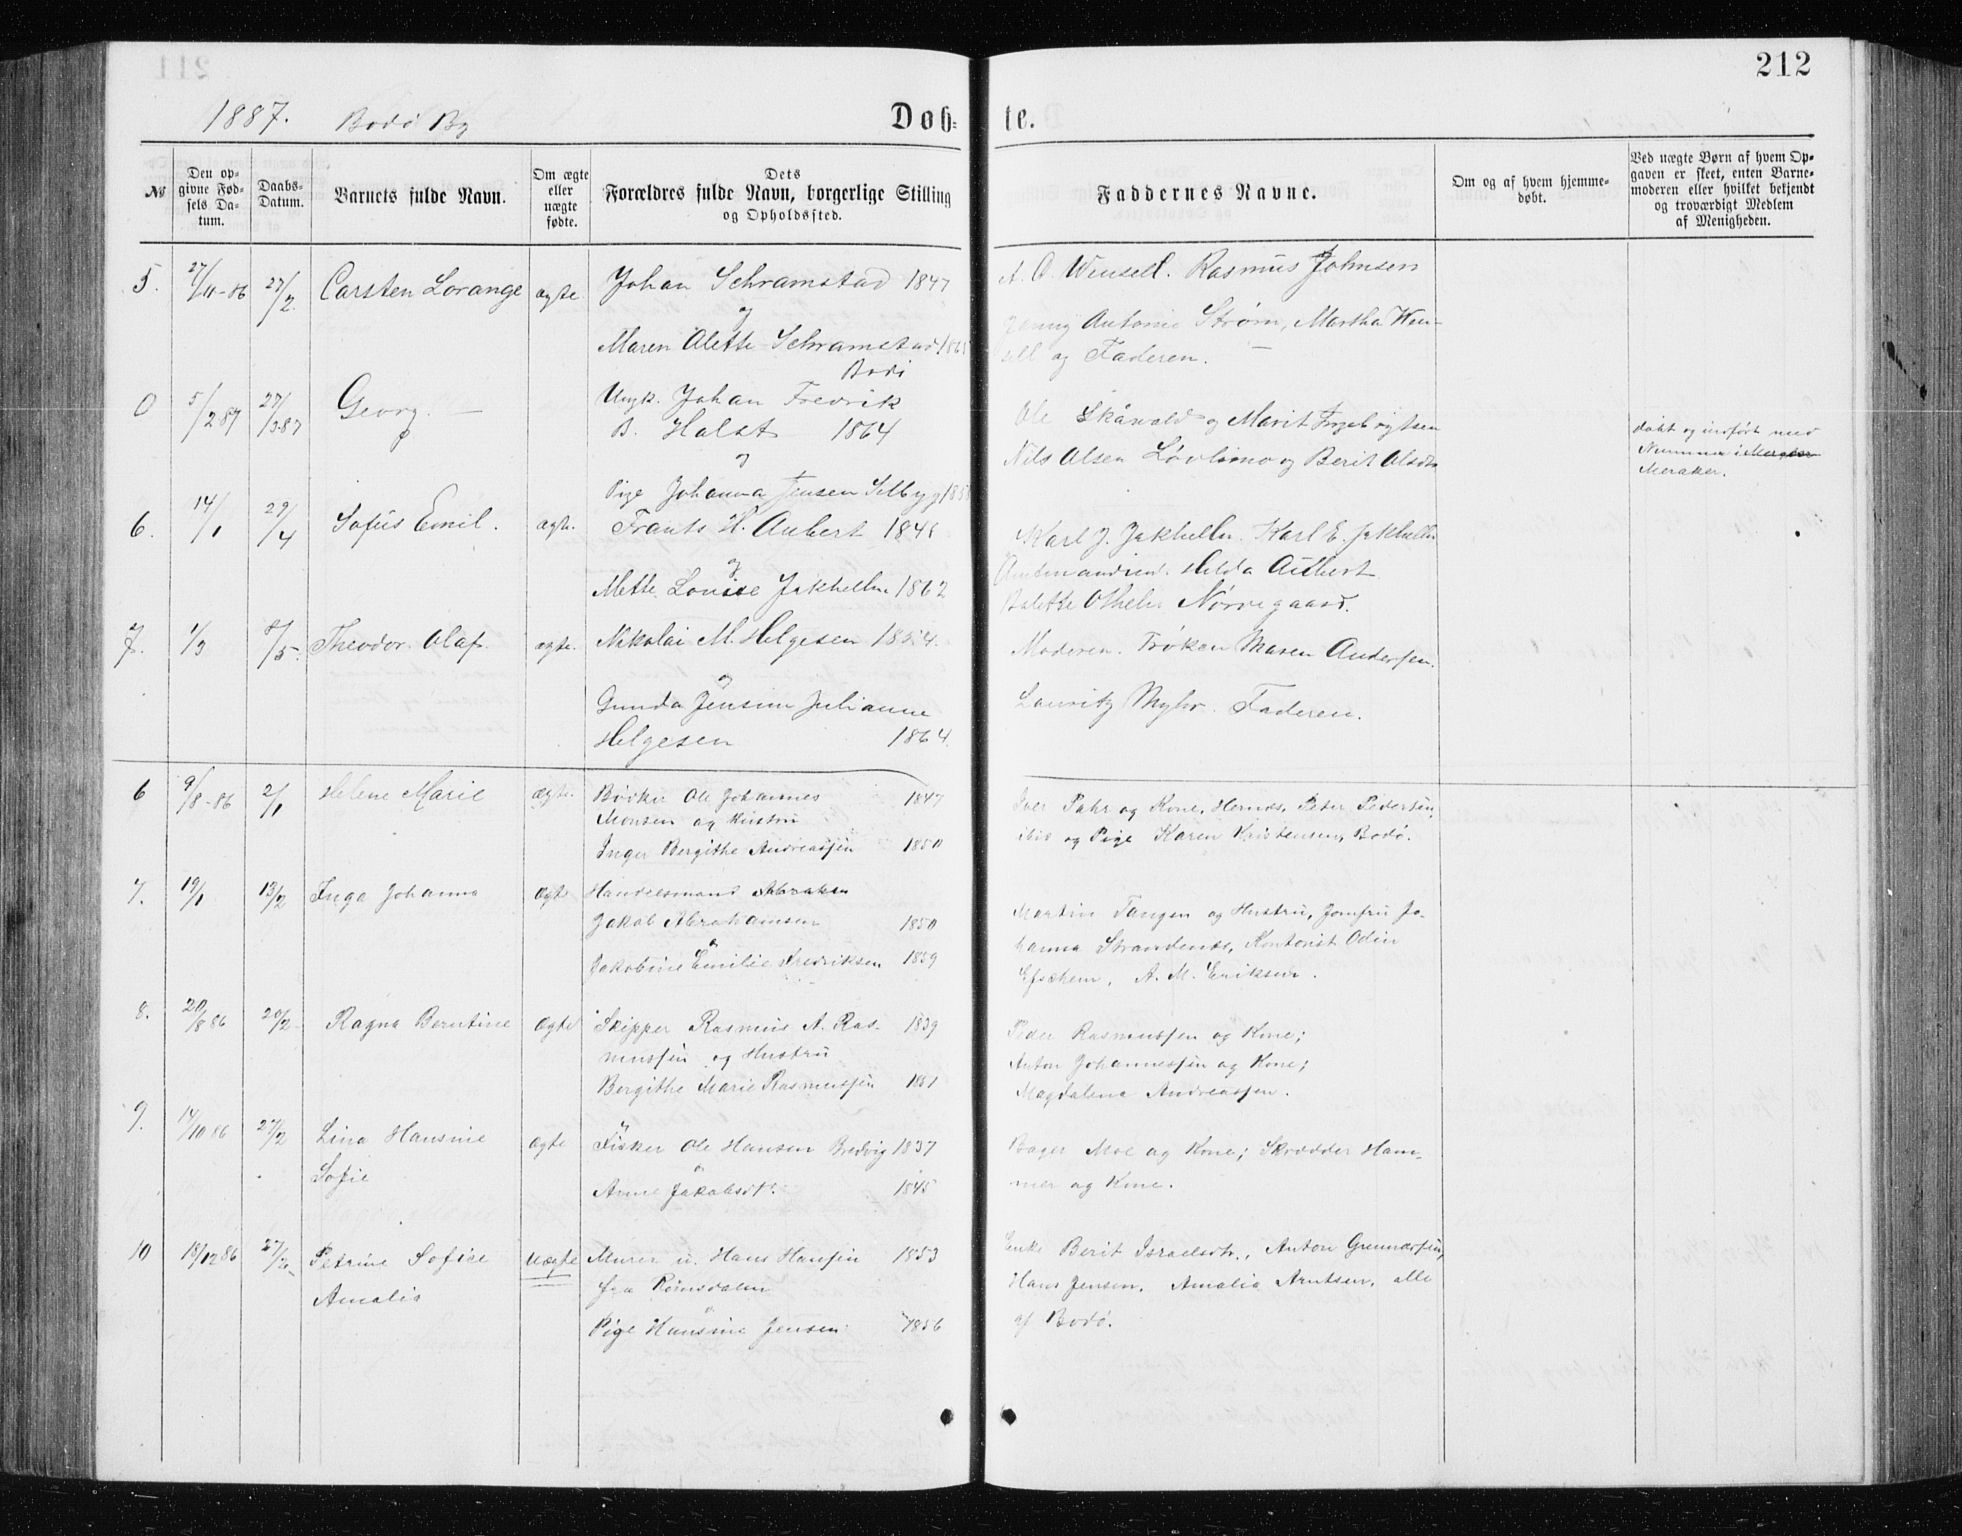 212
1887. Bodø By
Døb-te.
№
Den op-
givne Fød-
sels Da-
tum.
Daabs-
Datum.
Barnets fulde Navn.
Om ægte
eller
uægte
fødte.
Dets
Forældres fulde Navn, borgerlige Stilling
og Opholdssted.
Faddernes Navne.
Om og af hvem hjemme-
døbt.
Ved uægte Børn af hvem Op-
gaven er skeet, enten Barne-
moderen eller hvilket bekjendt
og troværdigt Medlem
af Menigheden.
5. 27/11-86 27/2. Carsten Lorange ægte Johan Schramstad 1847
og
Maren Alette Schramstad
Bodø
Rasmus Johnsen
Antonie Strøm, Martha Wen-
sell og Faderen. —
0 5/2 87 27/3 87 Georg. — Ungk. Johan Fredrik
B. Holst 1864
og
Pige Johanna Jensen
Ole Skåvold og Marit
Nils Olsen og Berit
døbt og indført med
Nummer i
Meraker.
6. 14/1 29/4 Sofus Emil. ægte. Frants H. Aubert
og
Mette Louise Jakhelln 1862
Karl J. Jakhelln. Karl E. Jakhelln
Hilda Aubert
7. 1/3 8/5. Theodor Olaf ægte. Nikolai M. Helgesen 1854.
og
Gunda Jensine Julianne
Helgesen 1864.
Moderen. Frøken Maren Andersen.
Lauritz Myhr. Faderen.
6 9/8-86 2/1 Helene Marie ægte. Bødker Ole Johannes 1847
Monsen og Hustru
Inger Bergithe Andreassen 1850
Iver og Kone, Peter Pedersen,
ibid og Pige Karen Kristensen, Bodø.
7. 19/1 13/2 Inga Johanna ægte Handelsmand
Jakob Abrahamsen 1850
Jakobine Emilie Fredriksen 1859
Martin Tangen og Hustru, Jomfru Jo-
hanna Strandenæs, Kontorist Odin
A. M. Eriksen.
8. 20/8 86 20/2 Ragna Berntine ægte Skipper Rasmus A. Ras- 1839
mussen og Hustru
Bergithe Marie Rasmussen 1851
Peder Rasmussen og Kone;
Anton Johannessen og Kone;
Magdalena Andreassen.
9. 14/10 86 27/2 Lina Hansine ægte Fisker Ole Hansen Bredvig 1837
Sofie
Anne Jakobsdt. 1845
Bager Moe og Kone; Skrædder Ham-
mer og Kone.
10 18/12 86 27/2 Petrine Sofie uægte Murer u. Hans Hansen 1853
Amalia
fra Romsdalen
Pige Hansine Jensen 1856
Enke Berit Israelsdt., Anton Gunnarsen,
Hans Jensen, Amalia Arntsen, alle
af Bodø.